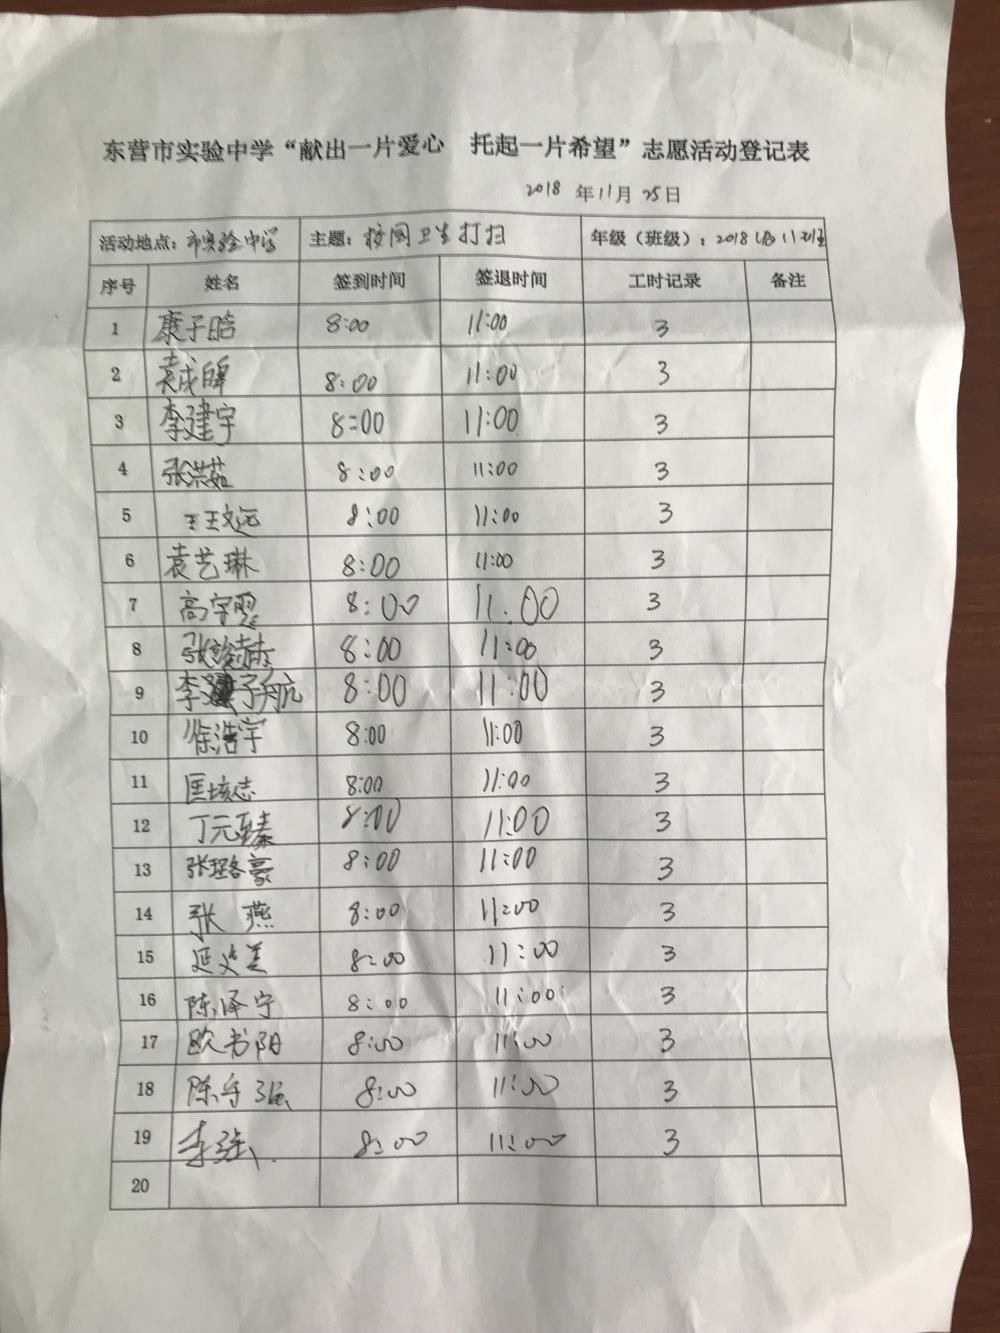 东营市实验中学“献出一片爱心 托起一片希望”志愿活动登记表
2018 年 11 月 25 日
活动地点：市实验中学 主题：校园卫生打扫 年级（班级）：2018级11班
序号 姓名 签到时间 签退时间 工时记录 备注
1 康子晗 8:00 11:00 3
2 袁成皞 8:00 11:00 3
3 李建宇 8:00 11:00 3
4 张洪茹 8:00 11:00 3
5 王文远 8:00 11:00 3
6 袁艺琳 8:00 11:00 3
7 高宇翌 8:00 11:00 3
8 张 8:00 11:00 3
9 李子航 8:00 11:00 3
10 徐浩宇 8:00 11:00 3
11 匡垓志 8:00 11:00 3
12 丁元臻 8:00 11:00 3
13 张珞豪 8:00 11:00 3
14 张燕 8:00 11:00 3
15 延 8:00 11:00 3
16 陈泽宁 8:00 11:00 3
17 欧书阳 8:00 11:00 3
18 陈守强 8:00 11:00 3
19 李强 8:00 11:00 3
20